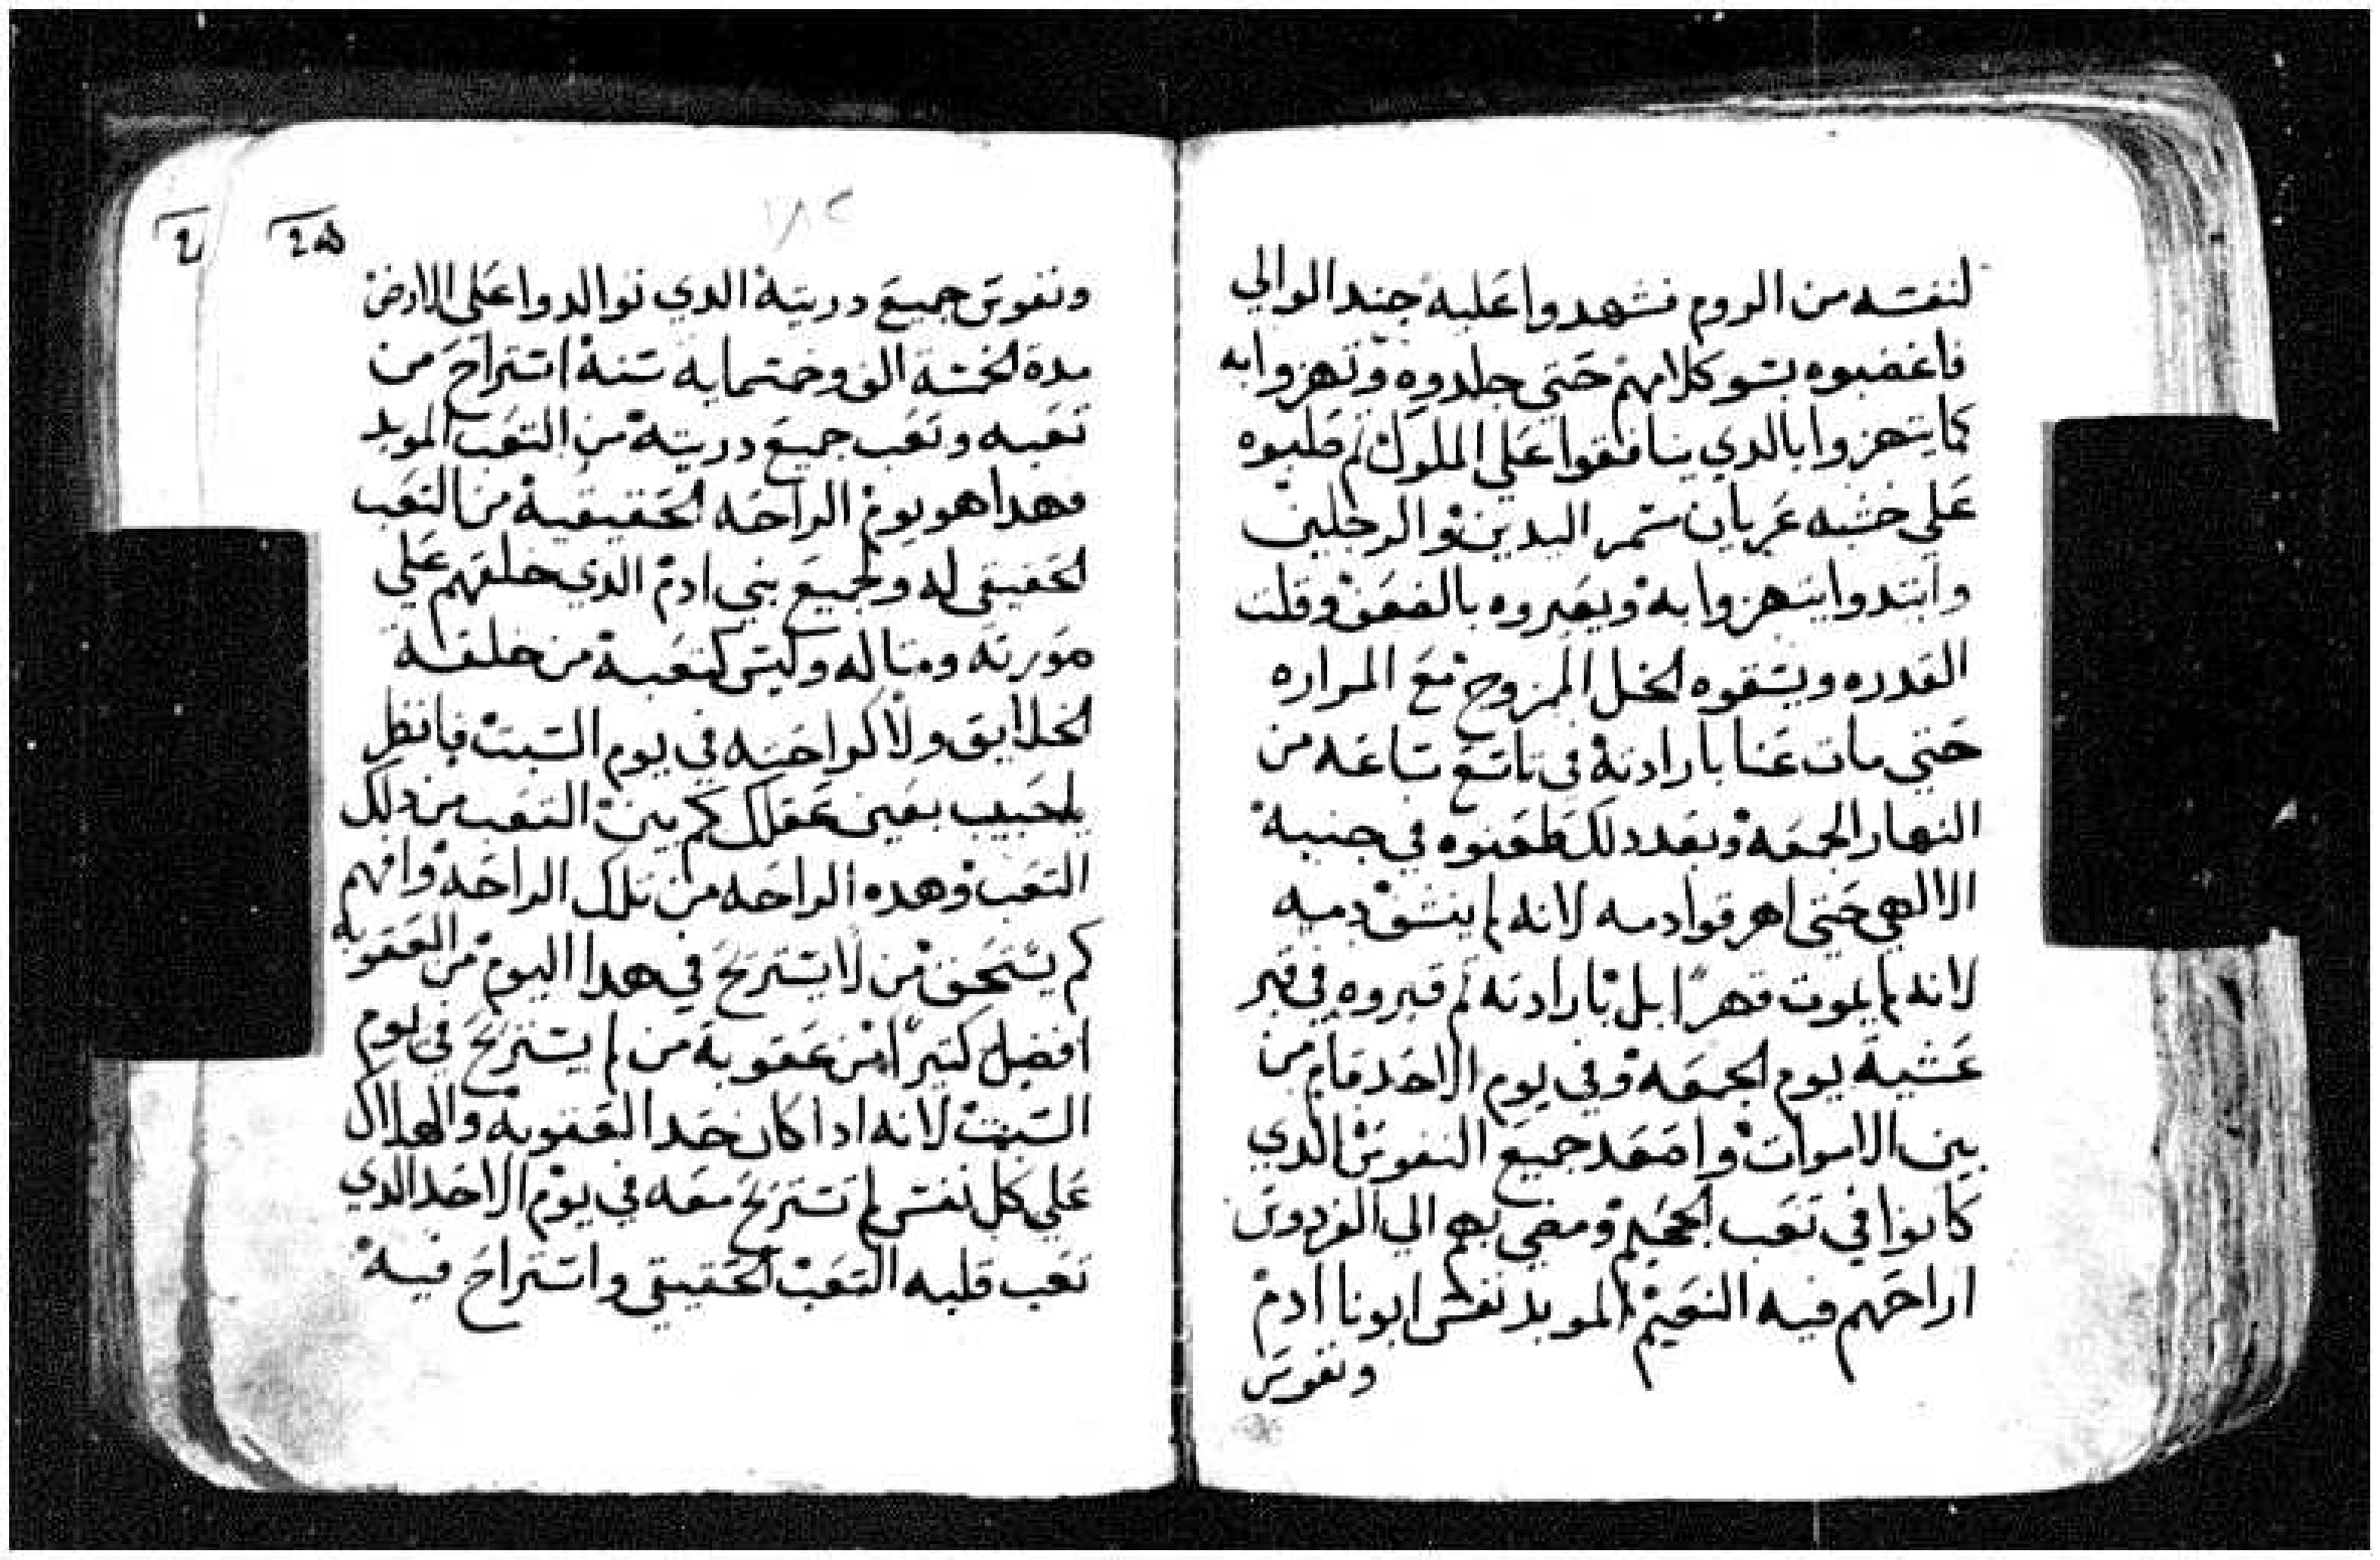 لنفسه من الروم فشهدوا عليه جند الوالي
فاغضبوه بسو كلامهم حتي جلدوه وتهزوا به
كما يتهزوا بالدي ينافقوا علي الملوك ثم صلبوه
علي خشبه عريان مسمر اليدين والرجلين
وابتدوا يتهزوا به ويعيروه بالضعف وقلت
القدره ويسقوه الخل الممزوج مع المراره
حتي مات عنا بارادته في تاسع ساعه من
النهار الجمعه وبعد دلك طعنوه في جنبه
الالهي حتي اهرقوا دمه لانه لم ينشف دمه
لانه لم يموت قهرًا بل بارادته ثم قبروه في قبر
عشية يوم الجمعه وفي يوم الاحد قام من
بين الاموات واصعد جميع النفوس الدي
كانوا في تعب الجحيم ومضي بهم الي الفردوس
اراحهم فيه النعيم الموبد نفس ابونا ادم
ونفوس
١٨٢
ونفوس جميع دريته الدي توالدوا علي الارض
مدة لخمسة الف وخمسمايه سنه استراح من
تعبه وتعب جميع دريته من التعب الموبد
وهدا هو يوم الراحه الحقيقية من التعب
الحقيقي له ولجميع بني ادم الدي خلقهم علي
صورته ومثاله وليس كتعبه من خلقة
الخلايق ولا كراحته في يوم السبت فانظر
يا حبيب بعين عقلك كم بين التعب من دلك
التعب وهده الراحه من تلك الراحه وافهم
كم يستحق من لا يستريح في هدا اليوم من العقوبه
افضل كثيرًا من عقوبة من لم يستريح في يوم
السبت لانه ادا كان حد العقوبه والهلاك
علي كل نفس لم تستريح معه في يوم الاحد الدي
تعب قلبه التعب الحقيقي واستراح فيه